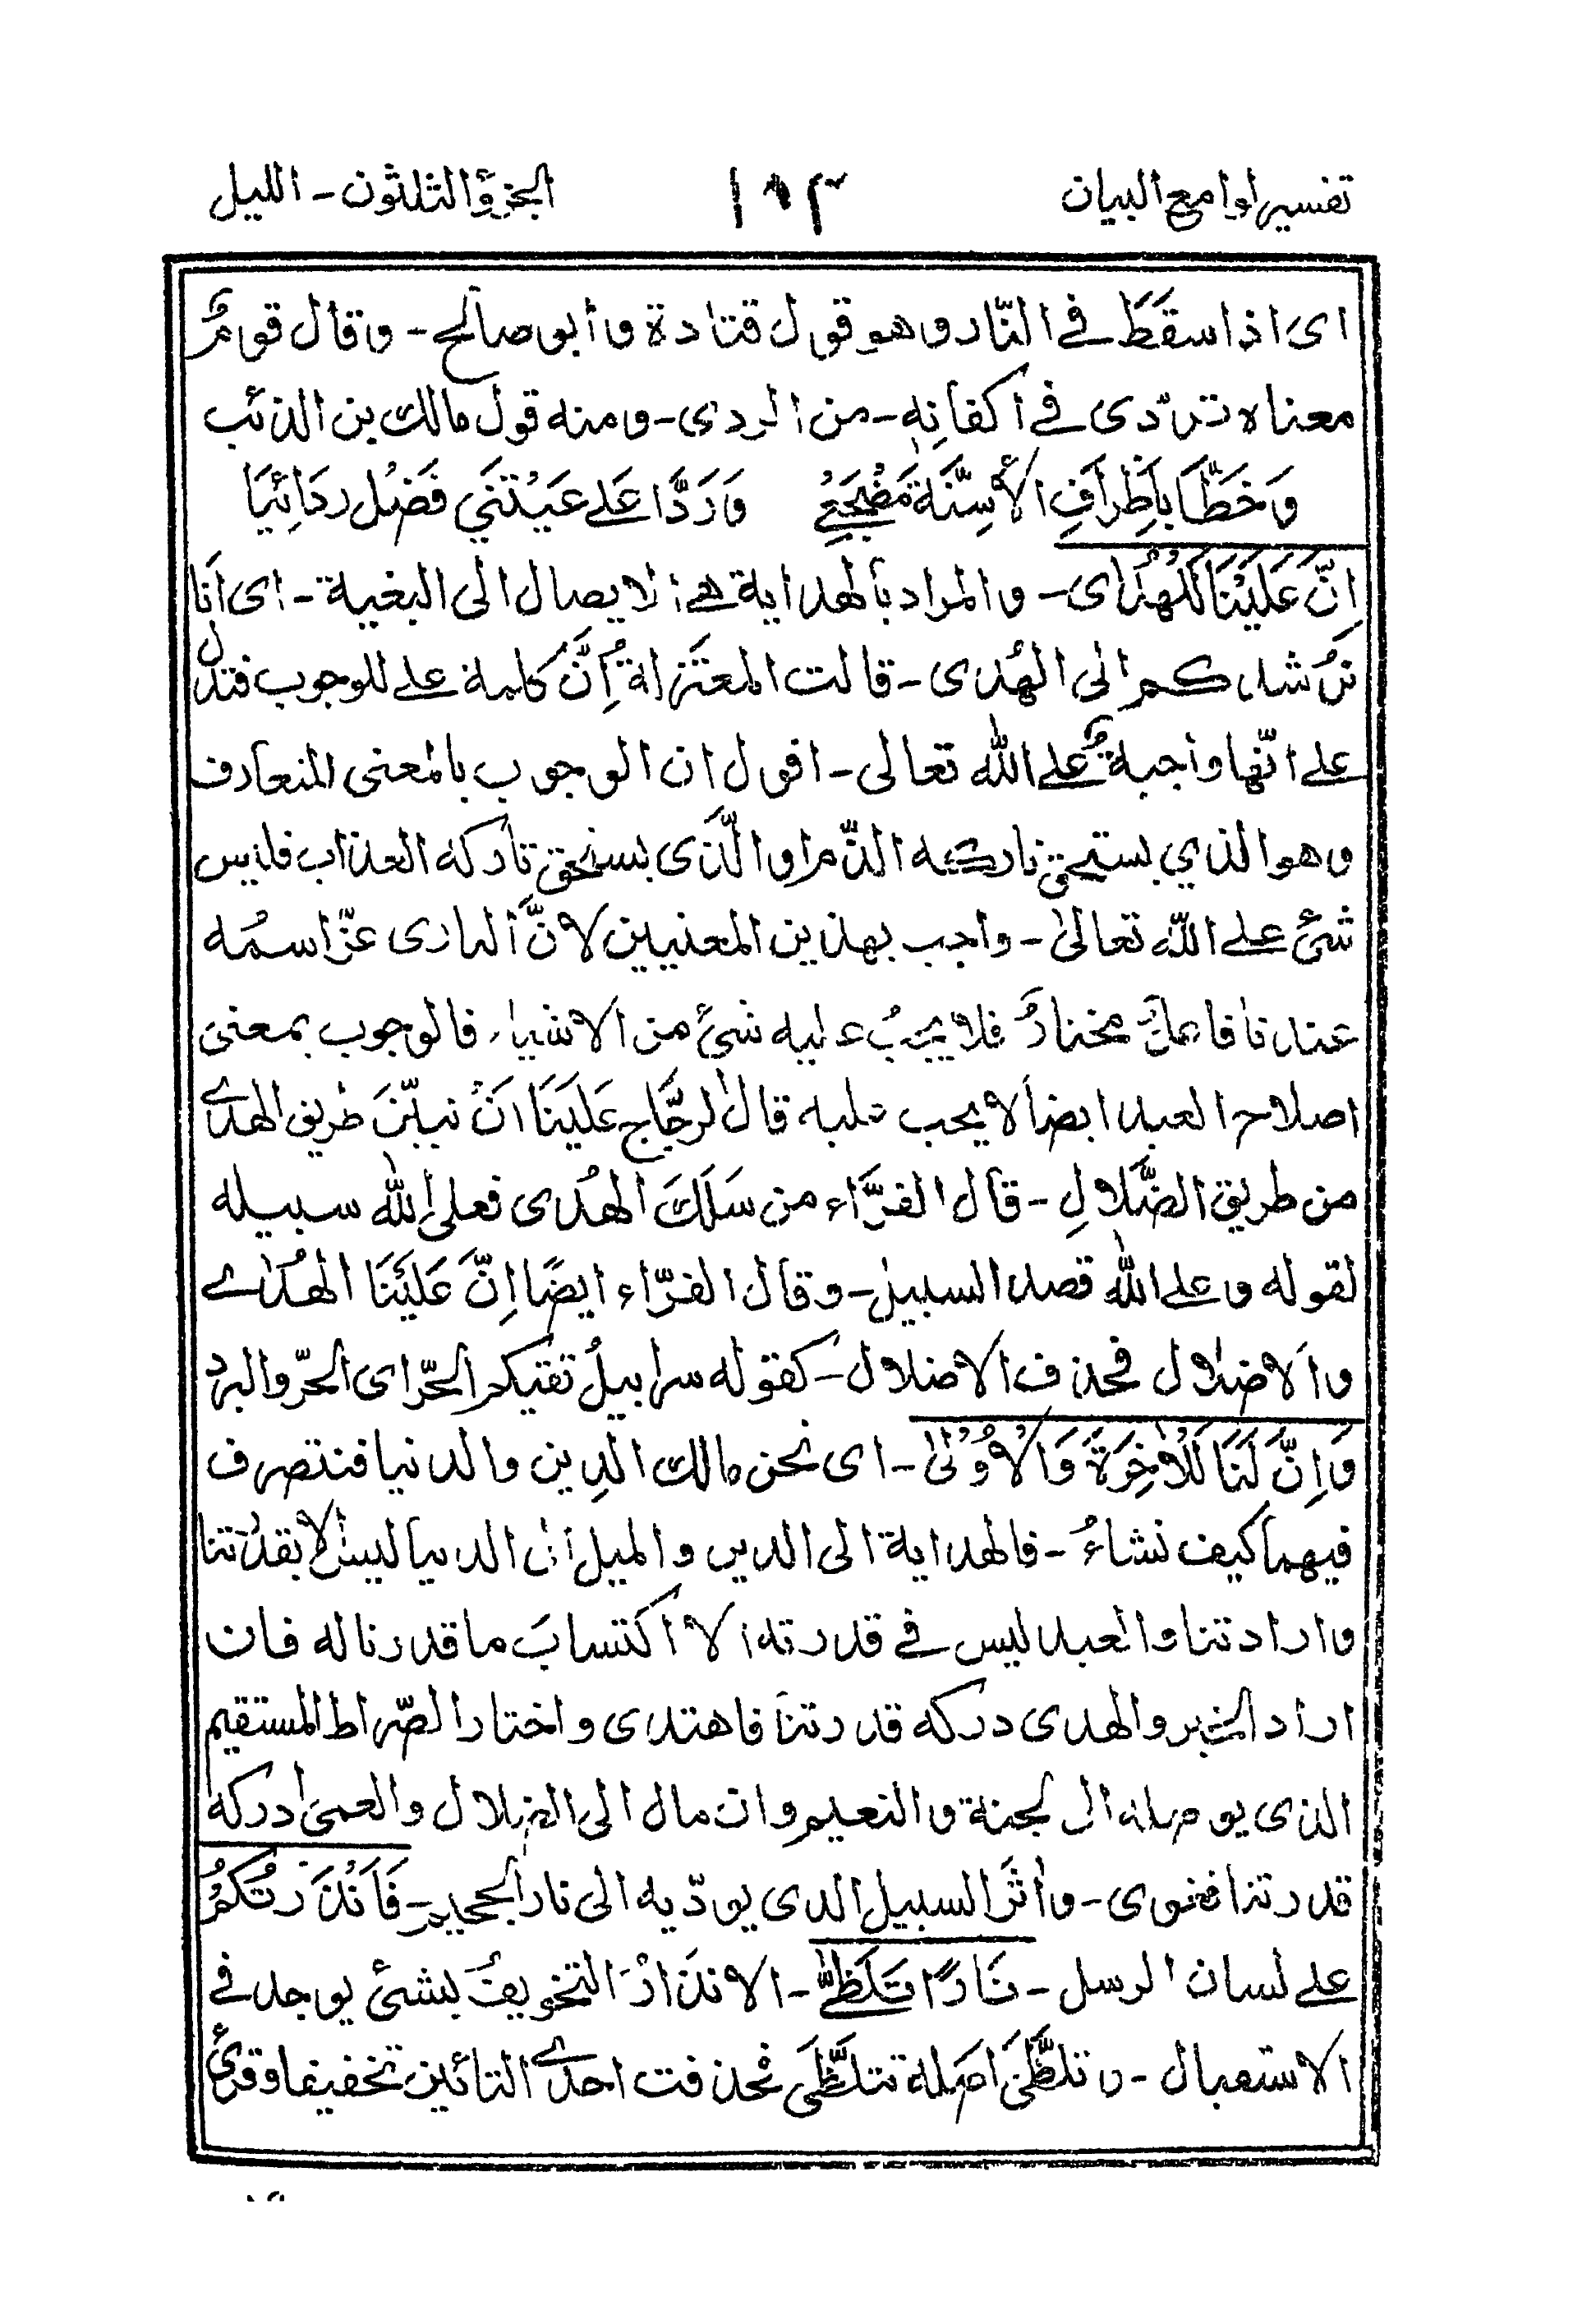 تفسير لوامع البيان
١٩٢
الجزؤ الثلثون - الليل
اى اذا سقَطَ في النّار وهو قول قتادة وأبو صالح - وقال قومٌ
معناه تردّى في أكفانِهٖ - من الردى - ومنه قول مالك بن الذئب
وَخَطَّا بأَطرَافِ الأسِنَّةِ مَضْجَعِي وَرَدَّا عَلى عَيْتَنَي فَضْلَ رِدَائِيَا
اِنَّ عَلَيْنَا لَلْهُدٰى - والمراد بالهداية هي الايصال الى البغية - اى انا
نرشدكم الى الهُدى - قالت المعتزلة اِنَّ كلمة على للوجوب فتدل
على انّها واجبةٌ على الله تعالى - اقول ان الوجوب بالمعنى المتعارف
وهو الذي يستحق تاركه الذّم او الّذى يستحق تاركه العذاب فليس
شئ على الله تعالىٰ - واجب بهذين المعنيين لانّ البارى عزّ اسمُه
عندنا فاعلٌ مختارٌ فلا يجبُ عليه شئ من الاشياء فالوجوب بمعنى
اصلاح العبد ايضاً لا يجب عليه قال الزجَّاج عَلَينَا اَنْ نبيّنَ طريق الهدٰى
من طريق الضَّلالِ - قال الفرَّاء من سَلَكَ الهُدى فعلى الله سبيله
لقوله وعلى الله قصد السبيل - وقال الفرّاء ايضًا اِنَّ عَلَيْنَا الهُدٰى
والاضلال فحذف الاضلال - كقوله سرابيلُ تقيكم الحرّ اى الحرّ والبرد
وَاِنَّ لَنَا لَلْاٰخِرَةَ وَالْاُوْلىٰ - اى نحن مالك الدِين والدنيا فنتصرف
فيهما كيف نشاءُ - فالهداية الى الدين والميل الى الدنيا ليس الا بقدرتنا
وارادتنا والعبد ليس في قدرته الا اكتسابَ ما قدرنا له فان
اراد الخير والهدى دركه قدرتنا فاهتدى واختار الصّراط المستقيم
الذى يوصله الى الجنة والنعيم وان مال الى الضلال والعمىٰ ادركه
قدرتنا فغوى - وأثَر السبيل الذى يودّيه الى نار الجحيم - فَاَنْذَرْتُكُمْ
على لسان الرسل - نَارًا تَلَظّٰى - الانذارُ التخويفُ بشئ يوجد في
الاستقبال - و تلظّٰى اصله تتلظَّى فحذفت احدى التائين تخفيفا وقرئ